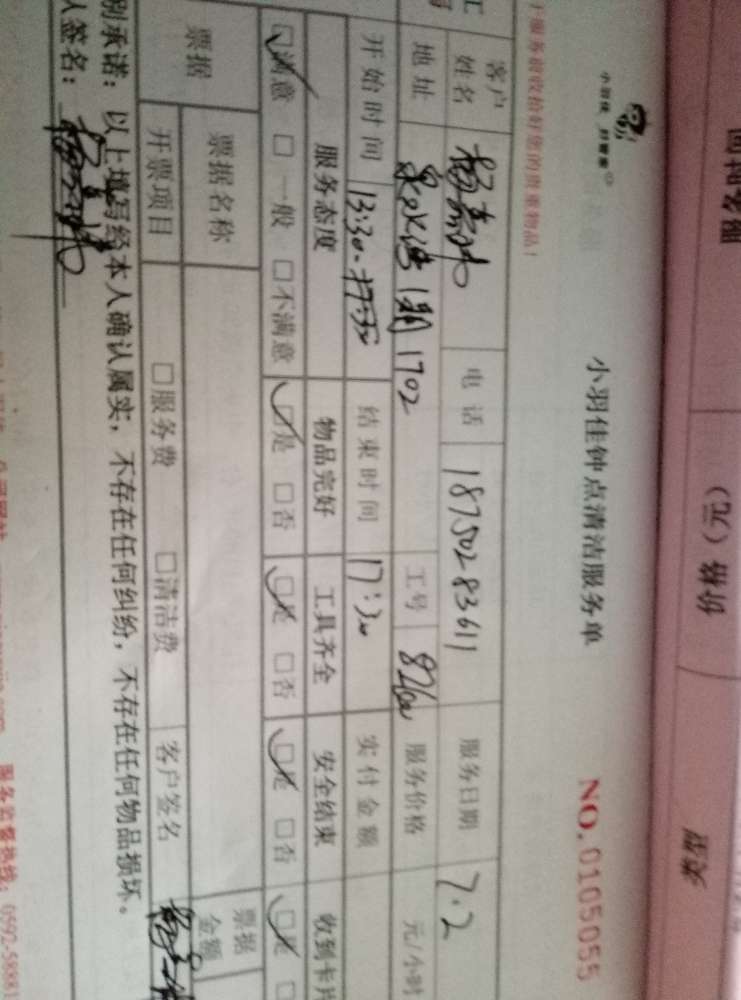 向 客服 价格（元） 类型
小羽佳 归管家
小羽佳钟点清洁服务单 NO.0105055
服务前收拾好您的贵重物品！
客户姓名 电话 18750283611 服务日期 7.2
地址 1期1702 工号 服务价格 元/小时
开始时间 13:30- 结束时间 17:30 实付金额
服务态度 物品完好 工具齐全 安全结束 收到卡片
☑满意 □一般 □不满意 ☑是 □否 ☑是 □否 ☑是 □否 ☑是 □
票据 票据名称 票据金额
开票项目 □服务费 □清洁费 客户签名
别承诺：以上填写经本人确认属实，不存在任何纠纷，不存在任何物品损坏。
人签名：
服务监督热线：0592-58881